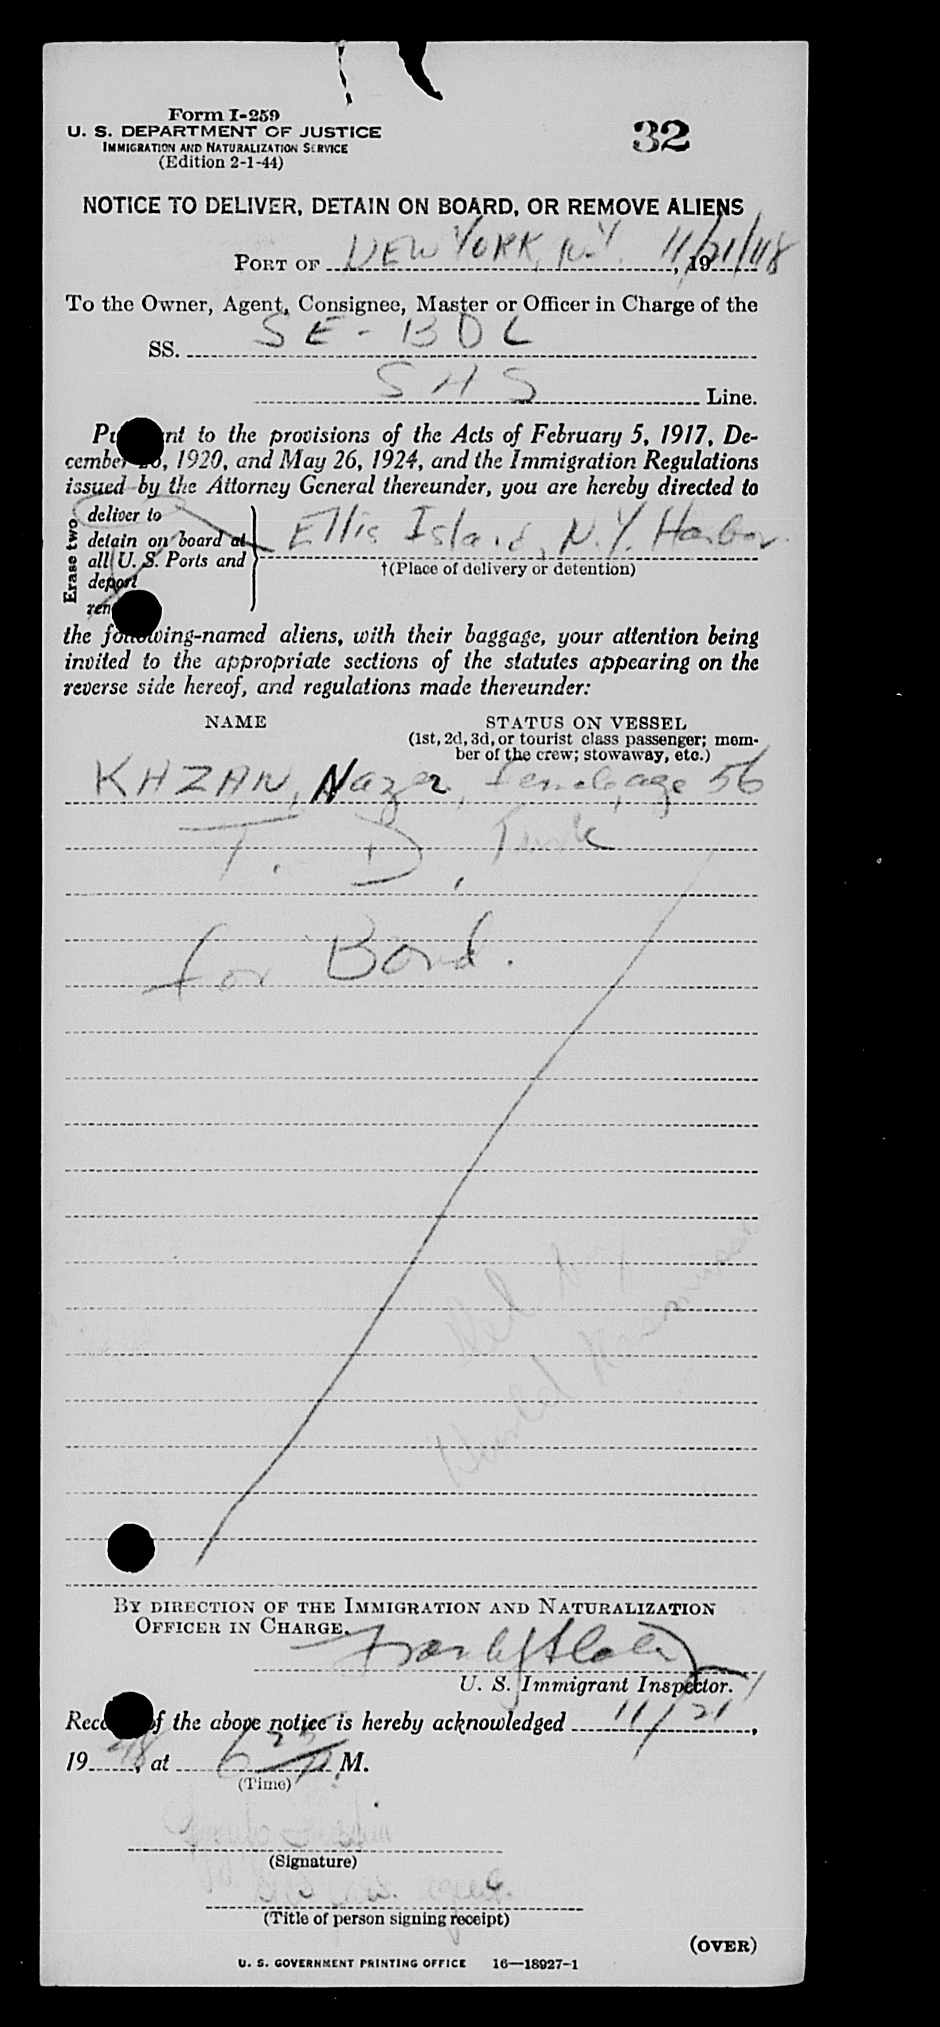 Form I-259
U. S. DEPARTMENT OF JUSTICE
IMMIGRATION AND NATURALIZATION SERVICE
(Edition 2-1-44)
32
NOTICE TO DELIVER, DETAIN ON BOARD, OR REMOVE ALIENS
PORT OF NEW YORK, N.Y. 11/21/48, 19
To the Owner, Agent, Consignee, Master or Officer in Charge of the
SS. SE-BDL
SAS Line.
Pu nt to the provisions of the Acts of February 5, 1917, De-
cember , 1920, and May 26, 1924, and the Immigration Regulations
issued by the Attorney General thereunder, you are hereby directed to
Erase two
deliver to
detain on board at
all U. S. Ports and
deport
rem
Ellis Island, N.Y. Harbor
†(Place of delivery or detention)
the following-named aliens, with their baggage, your attention being
invited to the appropriate sections of the statutes appearing on the
reverse side hereof, and regulations made thereunder:
NAME STATUS ON VESSEL
(1st, 2d, 3d, or tourist class passenger; mem-
ber of the crew; stowaway, etc.)
KAZAN, Nazer, female, age 56
T. D. Turk
for Bond.
BY DIRECTION OF THE IMMIGRATION AND NATURALIZATION
OFFICER IN CHARGE.
U. S. Immigrant Inspector.
Rece of the above notice is hereby acknowledged 11/21,
1948, at 6 25 P.M.
(Time)
(Signature)
agent.
(Title of person signing receipt)
(OVER)
U. S. GOVERNMENT PRINTING OFFICE 16—18927-1